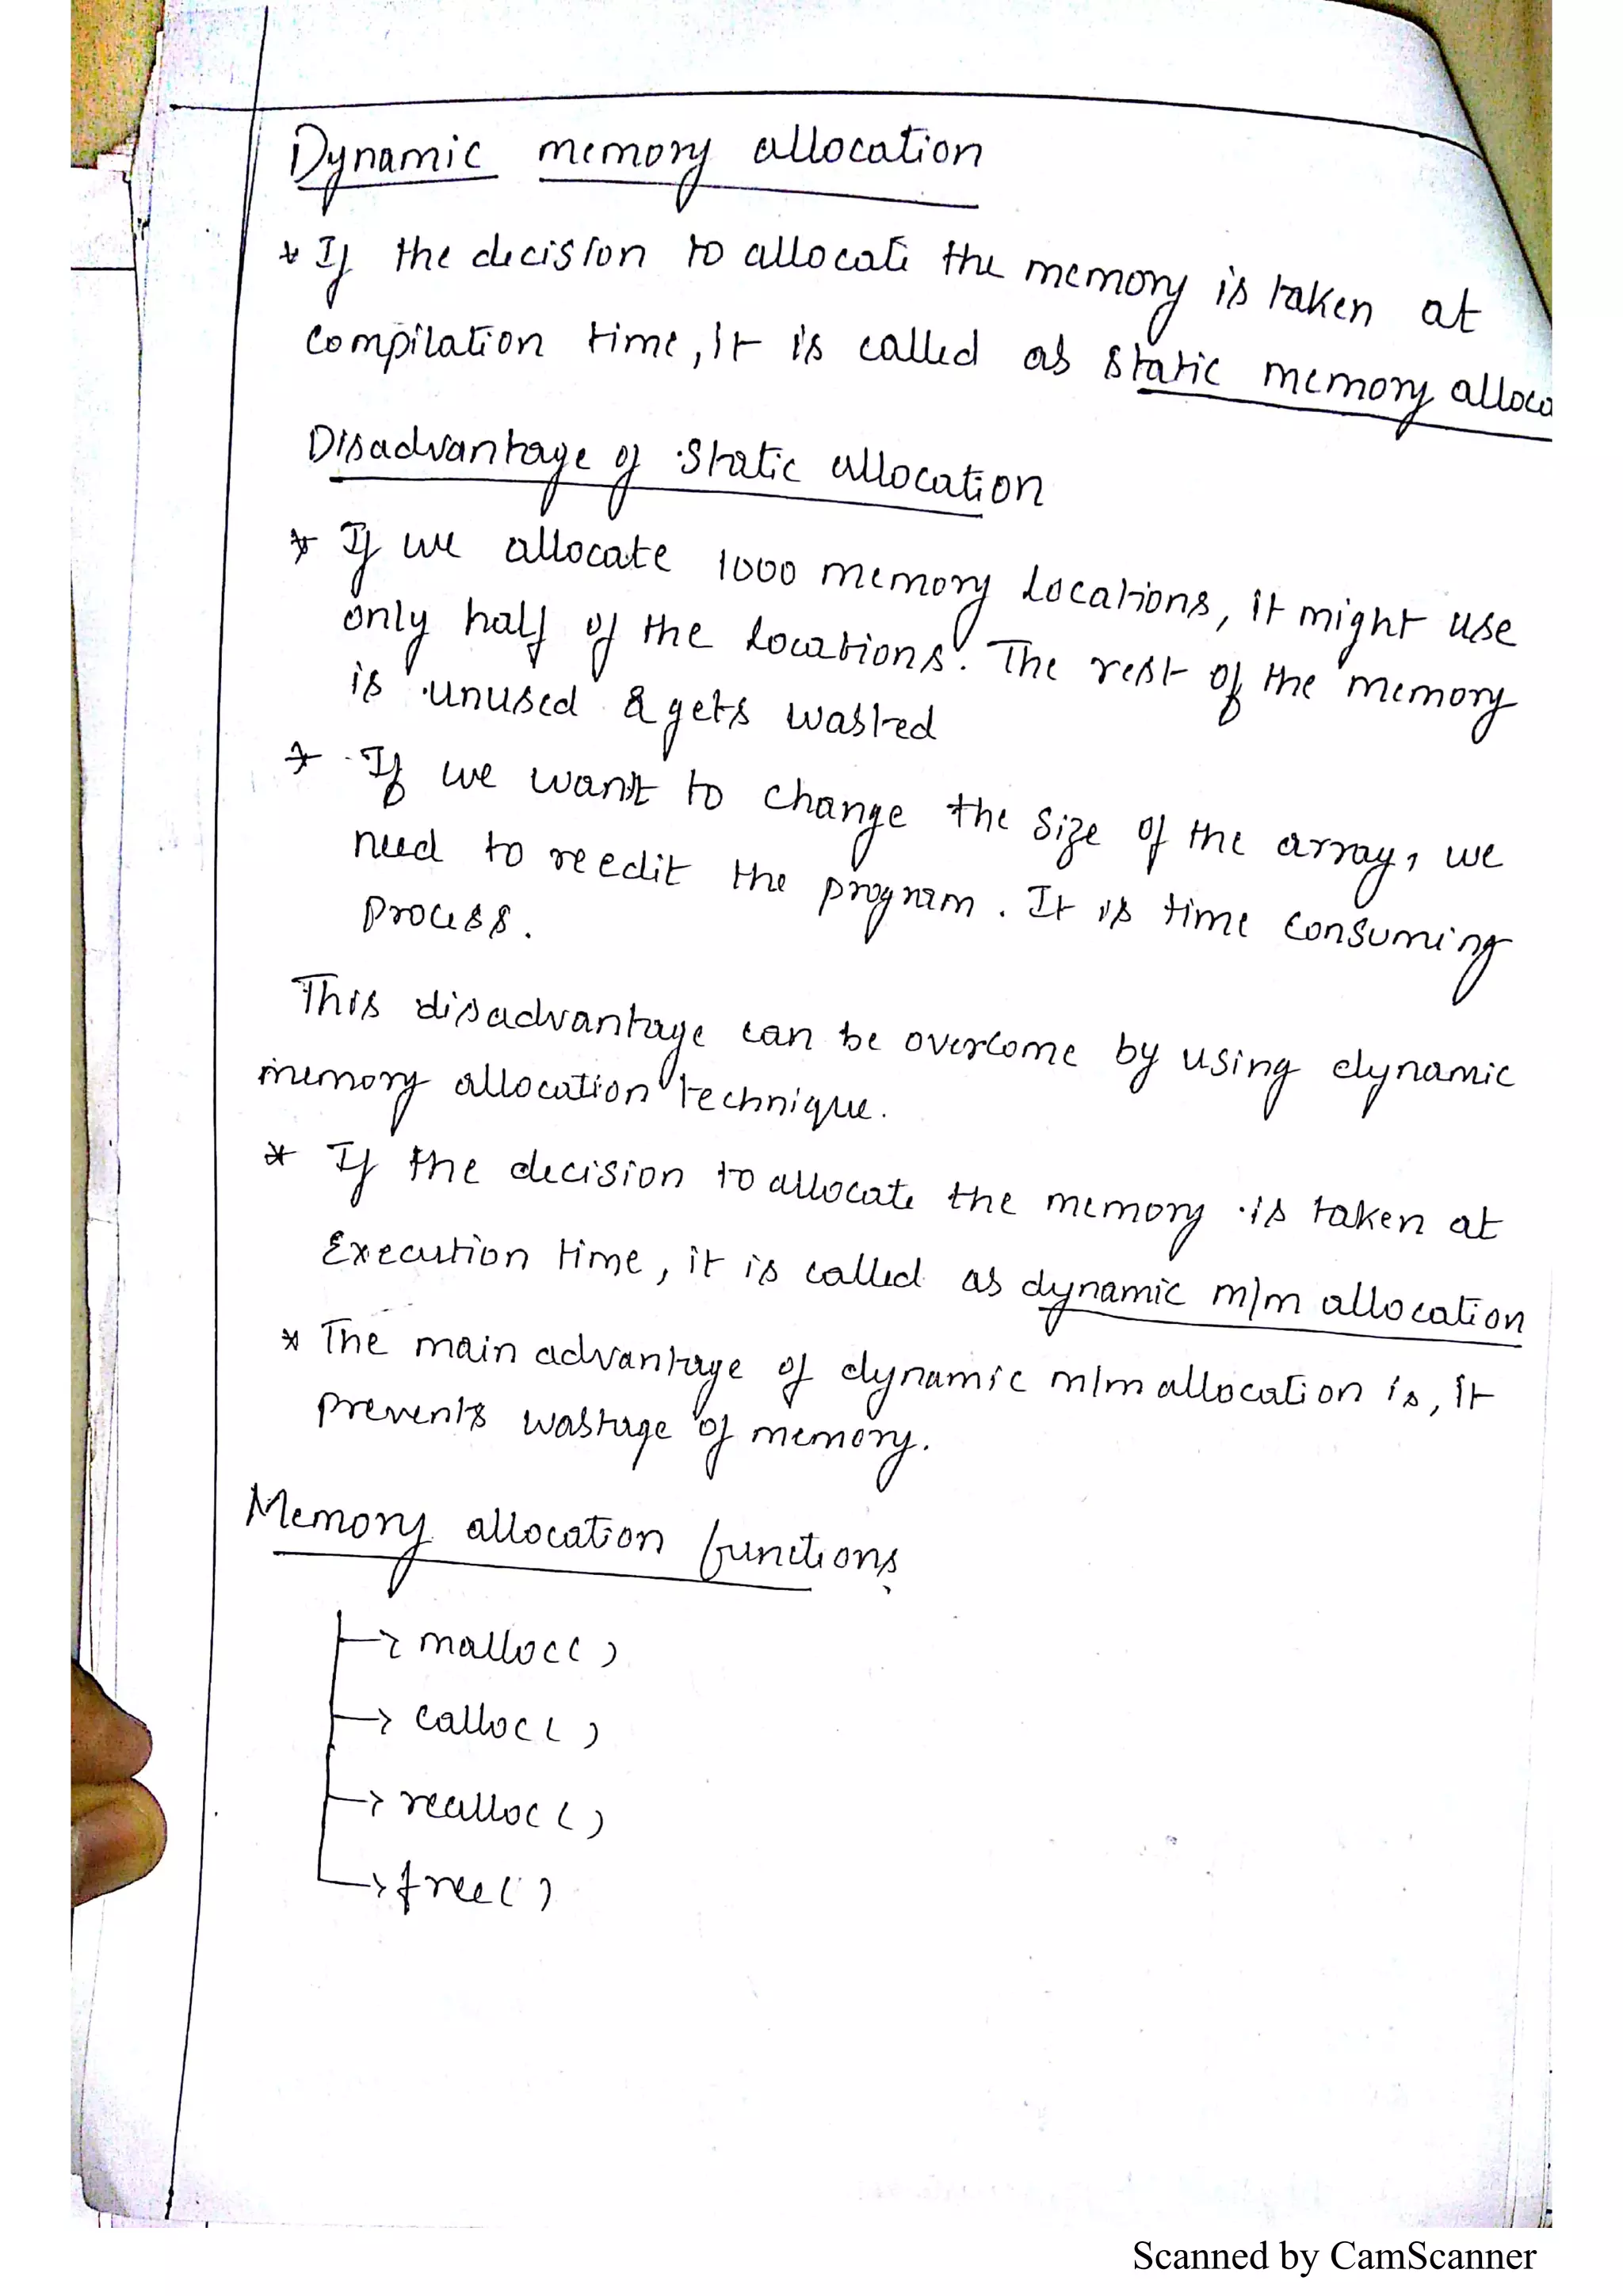 Dynamic memory allocation
* If the decision to allocate the memory is taken at
compilation time, it is called as static memory alloca
Disadvantage of static allocation
* If we allocate 1000 memory locations, it might use
only half of the locations. The rest of the memory
is unused & gets wasted
* If we want to change the size of the array, we
need to reedit the program. It is time consuming
process.
This disadvantage can be overcome by using dynamic
memory allocation technique.
* If the decision to allocate the memory is taken at
Execution time, it is called as dynamic m/m allocation
* The main advantage of dynamic m/m allocation is, it
prevents wastage of memory.
Memory allocation functions
→ malloc( )
→ calloc( )
→ realloc( )
→ free( )
Scanned by CamScanner